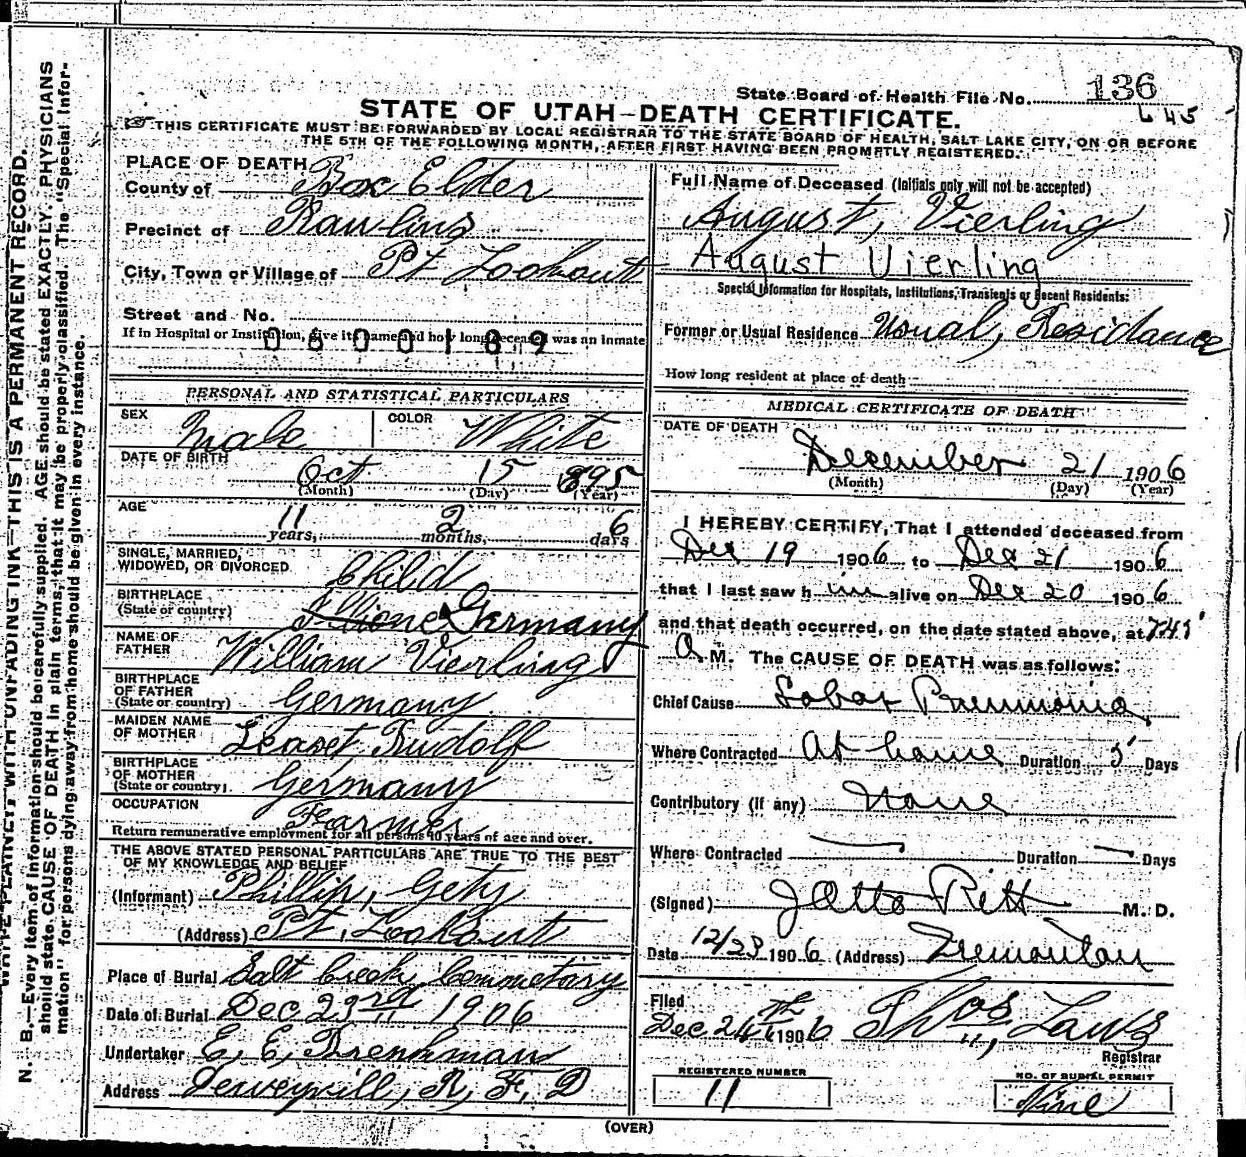 State Board of Health File No. 136
645
STATE OF UTAH—DEATH CERTIFICATE.
THIS CERTIFICATE MUST BE FORWARDED BY LOCAL REGISTRAR TO THE STATE BOARD OF HEALTH, SALT LAKE CITY, ON OR BEFORE
THE 5TH OF THE FOLLOWING MONTH, AFTER FIRST HAVING BEEN PROMPTLY REGISTERED.
PLACE OF DEATH
County of Box Elder
Precinct of Rawlins
City, Town or Village of Pt Lookout
Street and No.
If in Hospital or Institution, give its name and how long deceased was an inmate
0600189
PERSONAL AND STATISTICAL PARTICULARS
SEX Male COLOR White
DATE OF BIRTH Oct 15 895
(Month) (Day) (Year)
AGE 11 years, 2 months, 6 days
SINGLE, MARRIED,
WIDOWED, OR DIVORCED Child
BIRTHPLACE
(State or country) Germany
NAME OF
FATHER William Vierling
BIRTHPLACE
OF FATHER
(State or country) Germany
MAIDEN NAME
OF MOTHER Leaset Rudolf
BIRTHPLACE
OF MOTHER
(State or country) Germany
OCCUPATION Farmer
Return remunerative employment for all persons 10 years of age and over.
THE ABOVE STATED PERSONAL PARTICULARS ARE TRUE TO THE BEST
OF MY KNOWLEDGE AND BELIEF
(Informant) Phillip, Getz
(Address) Pt, Lookout
Place of Burial Salt Creek Commetary
Date of Burial Dec 23rd 1906
Undertaker E, E, Brenkman
Address Deweyvill, R, F, D
Full Name of Deceased (Initials only will not be accepted)
August, Vierling
August Vierling
Special Information for Hospitals, Institutions, Transients or Recent Residents:
Former or Usual Residence Usual, Residance
How long resident at place of death
MEDICAL CERTIFICATE OF DEATH
DATE OF DEATH
December 21 1906
(Month) (Day) (Year)
I HEREBY CERTIFY, That I attended deceased from
Dec 19 1906 to Dec 21 1906
that I last saw him alive on Dec 20 1906
and that death occurred, on the date stated above, at 7.45
A M. The CAUSE OF DEATH was as follows:
Chief Cause Lobar Pneumonia
Where Contracted At home Duration 5 Days
Contributory (If any) None
Where Contracted Duration Days
(Signed) J Otto Pitt M. D.
Date 12/23 1906 (Address) Tremonton
Filed
Dec 24th 1906 Thos, Laws
Registrar
REGISTERED NUMBER
11
NO. OF BURIAL PERMIT
Nine
(OVER)
WRITE PLAINLY, WITH UNFADING INK—THIS IS A PERMANENT RECORD.
N. B.—Every item of information should be carefully supplied. AGE should be stated EXACTLY. PHYSICIANS
should state CAUSE OF DEATH in plain terms, that it may be properly classified. The "Special Infor-
mation" for persons dying away from home should be given in every instance.